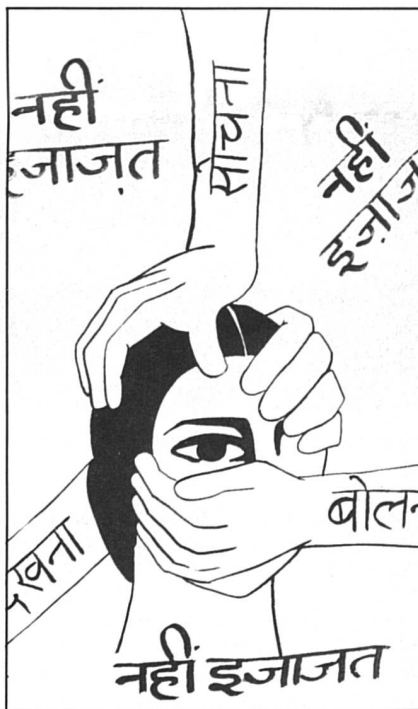 नहीं
इजाज़त
सोचना
नहीं
इज़ाज
देखना
बोलन
नहीं इजाजत